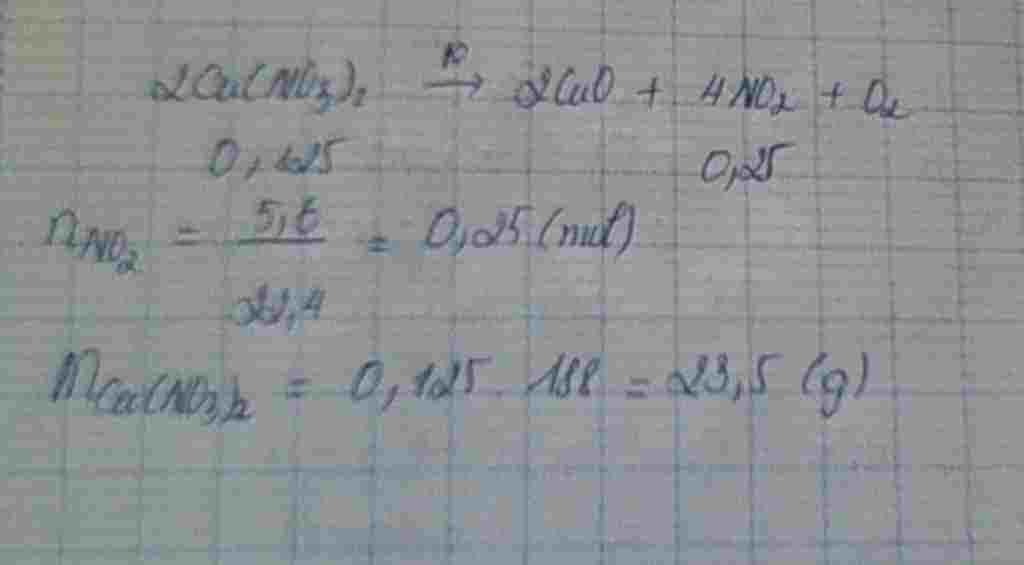 2Cu(NO3)2 t° → 2CuO + 4NO2 + O2
0,125 0,25
nNO2 = 5,6 / 22,4 = 0,25 (mol)
mCu(NO3)2 = 0,125 . 188 = 23,5 (g)